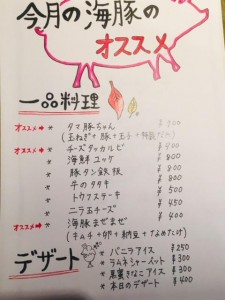 今月の海豚の
オススメ
一品料理
オススメ→ * タマ豚ちゃん
(玉ねぎ+豚+玉子+
オススメ→ * チーズタッカルビ
* 海鮮ユッケ ¥800
* 豚タン鉄板 ¥800
* 牛のタタキ ¥800
* トウフステーキ ¥500
* ニラ玉チーズ ¥450
オススメ→ * 海豚まぜまぜ ¥400
(キムチ+卵+納豆+なめたけ)
デザート
* バニラアイス ¥250
* ラムネシャーベット ¥300
* 黒蜜きなこアイス ¥300
* 本日のデザート ¥400